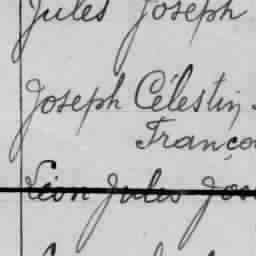 Jules Joseph
Joseph Célestin
Franço
Léon Jules Jos